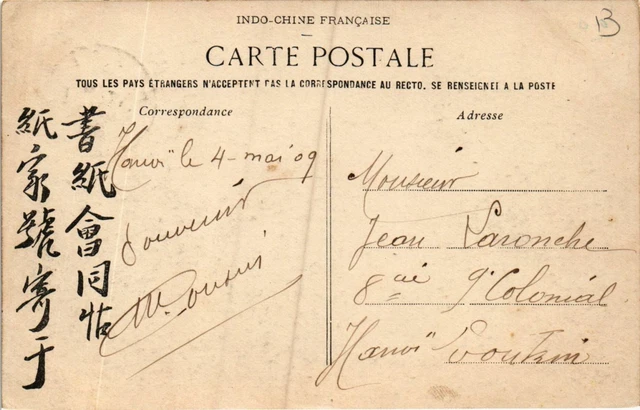 B
INDO-CHINE FRANÇAISE
CARTE POSTALE
TOUS LES PAYS ÉTRANGERS N'ACCEPTENT PAS LA CORRESPONDANCE AU RECTO. SE RENSEIGNER A LA POSTE
Correspondance
Hanoï le 4-mai 09
Souvenir
書紙會同怗
紙家號寄于
Adresse
Monsieur
Jean Laronche
8ᵉ Cie 9ᵉ Colonial
Hanoï Tonkin